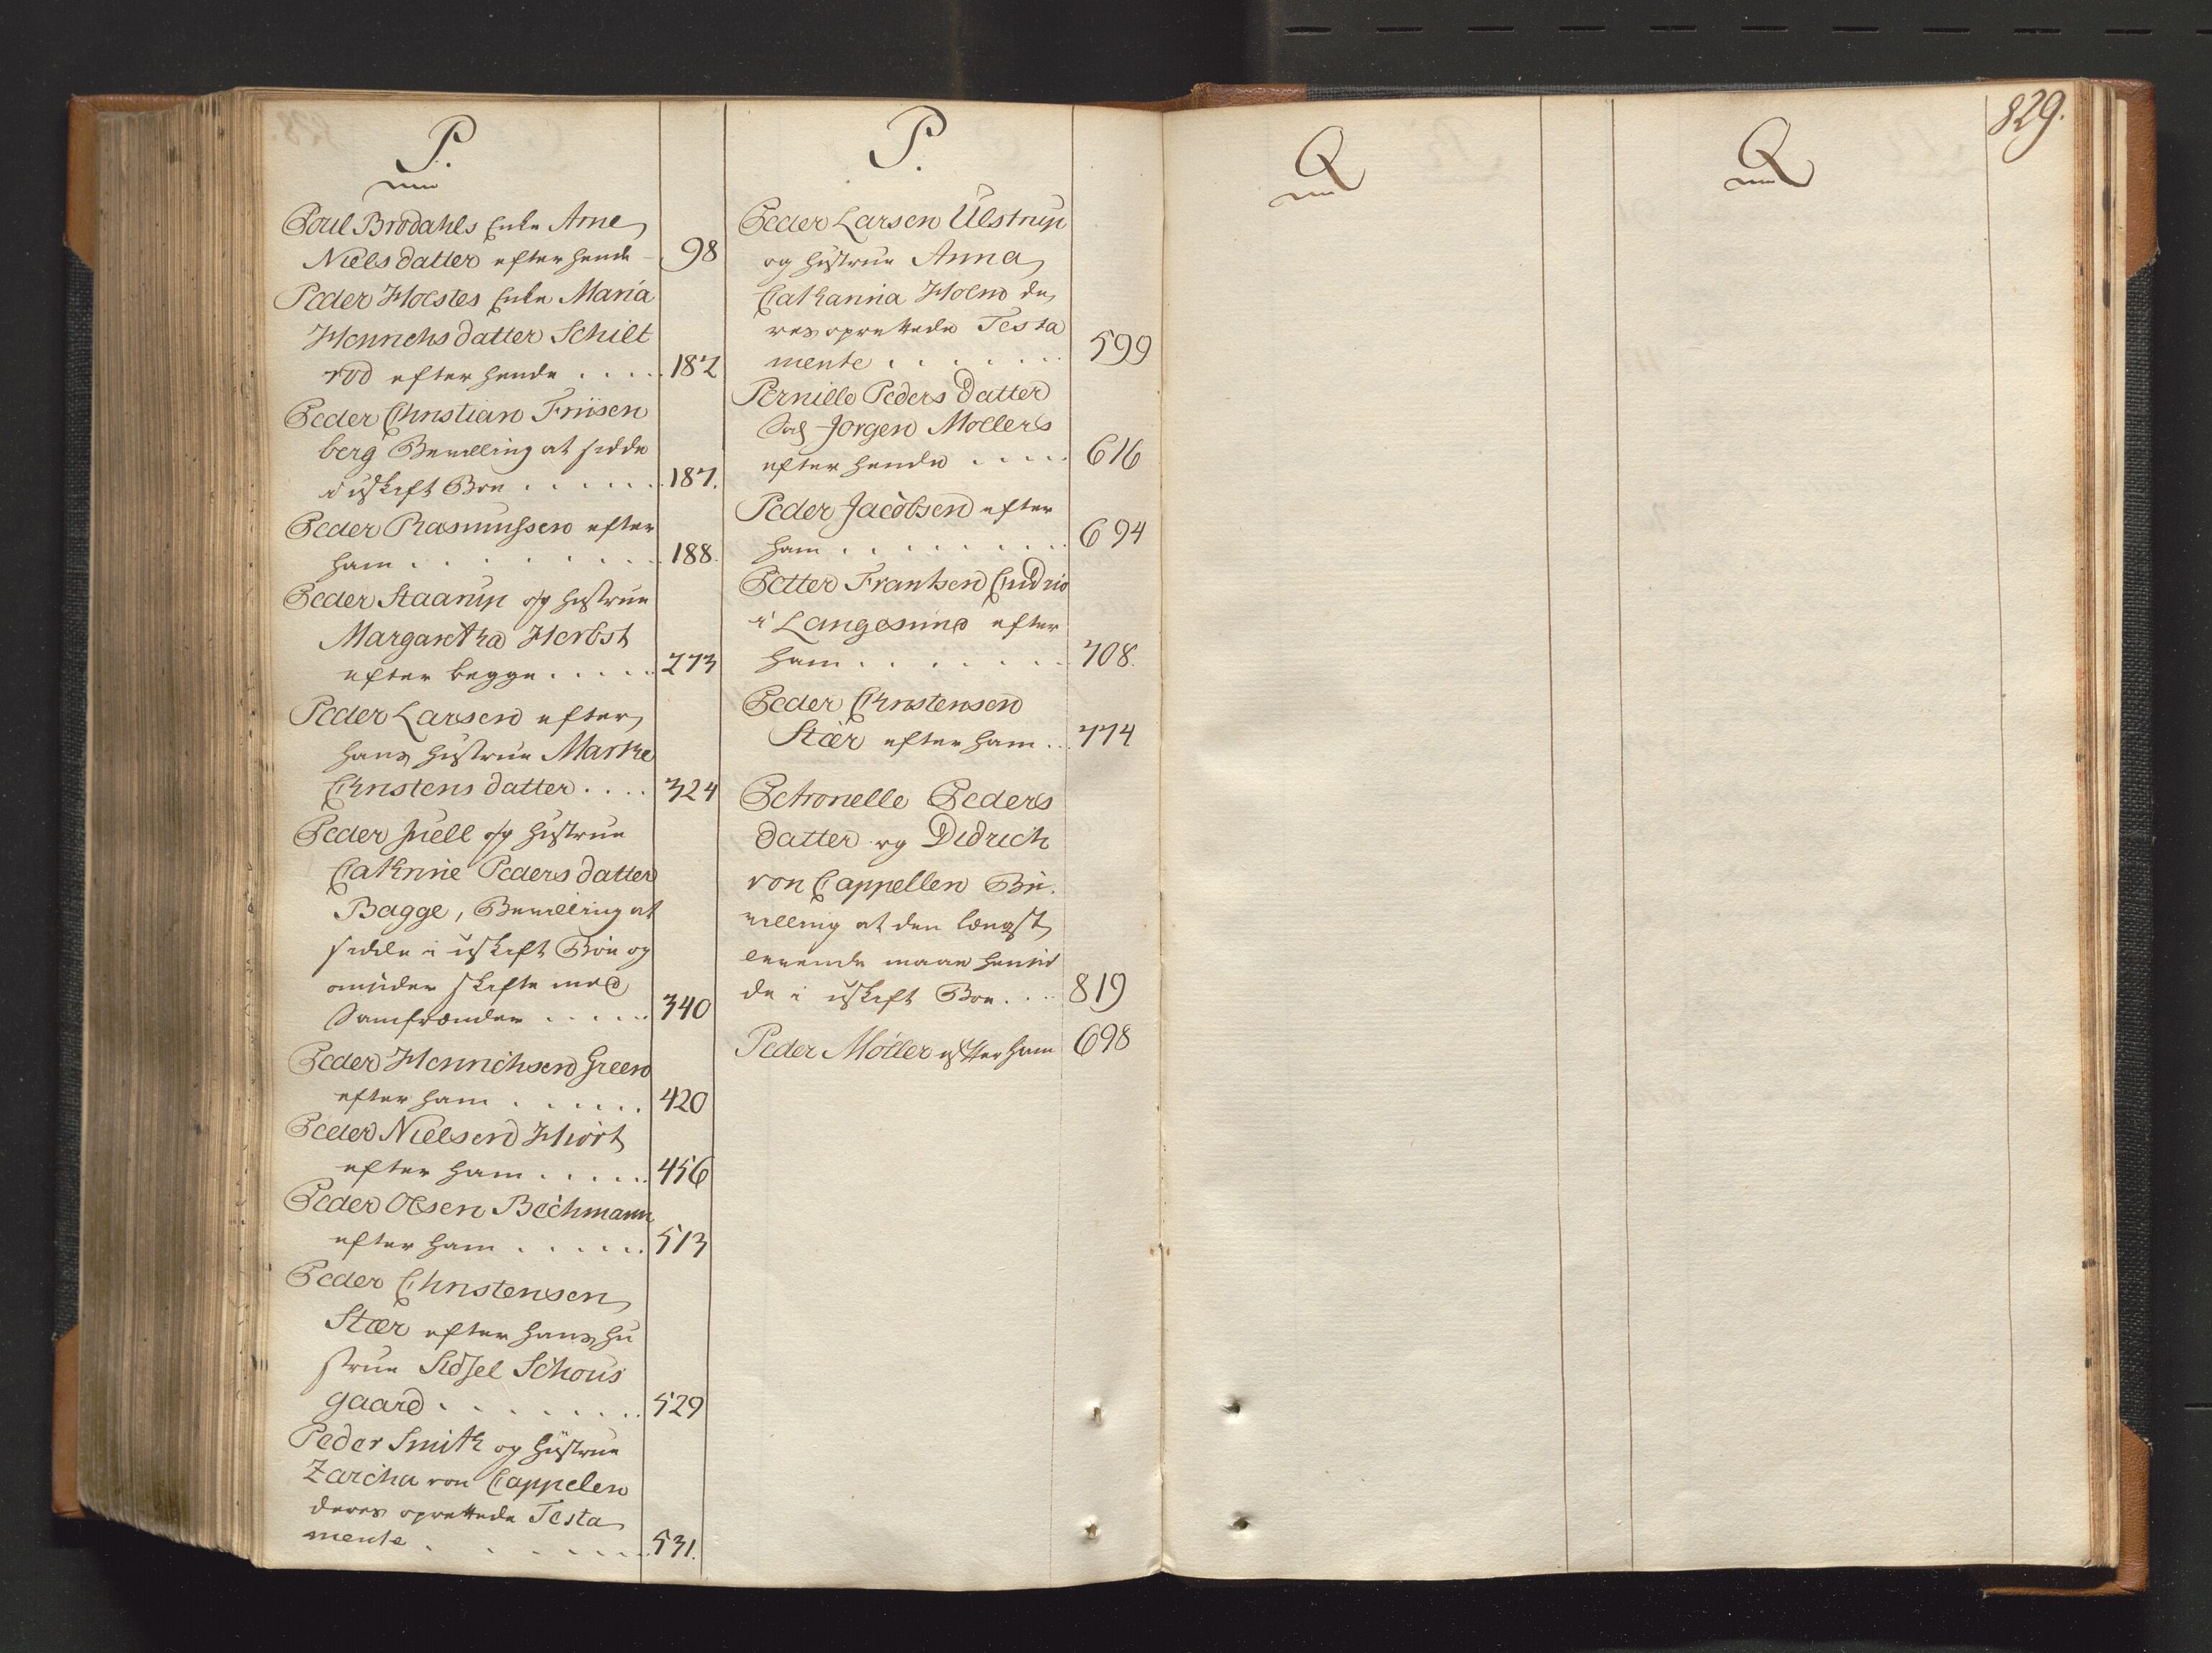 P.
Poul Brodahls Enke Arne
Nielsdatter efter hende - 98
Peder Holstes Enke Maria
Henrichsdatter Schilt
rod efter hende . . . . 182
Peder Christian Friisen
berg Bevilling at sidde
i uskift Boe . . . . . . 187.
Peder Rasmussen efter
ham . . . . . . . 188.
Peder Staarup og hustrue
Margaretha Herbst
efter begge . . . . . 273
Peder Larsen efter
hans hustrue Marthe
Christensdatter . . . . 324
Peder Juell og hustrue
Cathrine Pedersdatter
Bagge, Bevilling at
sidde i uskift Boe og
omsider skifte med
Samfrænder . . . . . 340
Peder Henrichsen Green
efter ham . . . . . . 420
Peder Nielsen Hiort
efter ham . . . . . 456
Peder Olsen Bechmann
efter ham . . . . . . 513
Peder Christensen
Stær efter hans hu
strue Sidsel Schous
gaard . . . . . . . 529
Peder Smith og hustrue
Zarcha von Cappelen
deres oprettede Testa
mente . . . . . . . 531.
P.
Peder Larsen Ulstrup
og hustrue Anna
Catharina Holm de
res oprettede Testa
mente . . . . . . . 599
Pernille Peders datter
Sal Jorgen Mollers
efter hende . . . . . 616
Peder Jacobsen efter
ham . . . . . . . . 694
Petter Frantsen
i Langesund efter
ham . . . . . . . 708.
Peder Christensen
Stær efter ham . . 774
Petronelle Peders
datter og Didrich
von Cappellen Be
villing at den længst
levende maae hensid
de i uskift Boe . . . 819
Peder Møller efter ham 698
Q
Q
829.